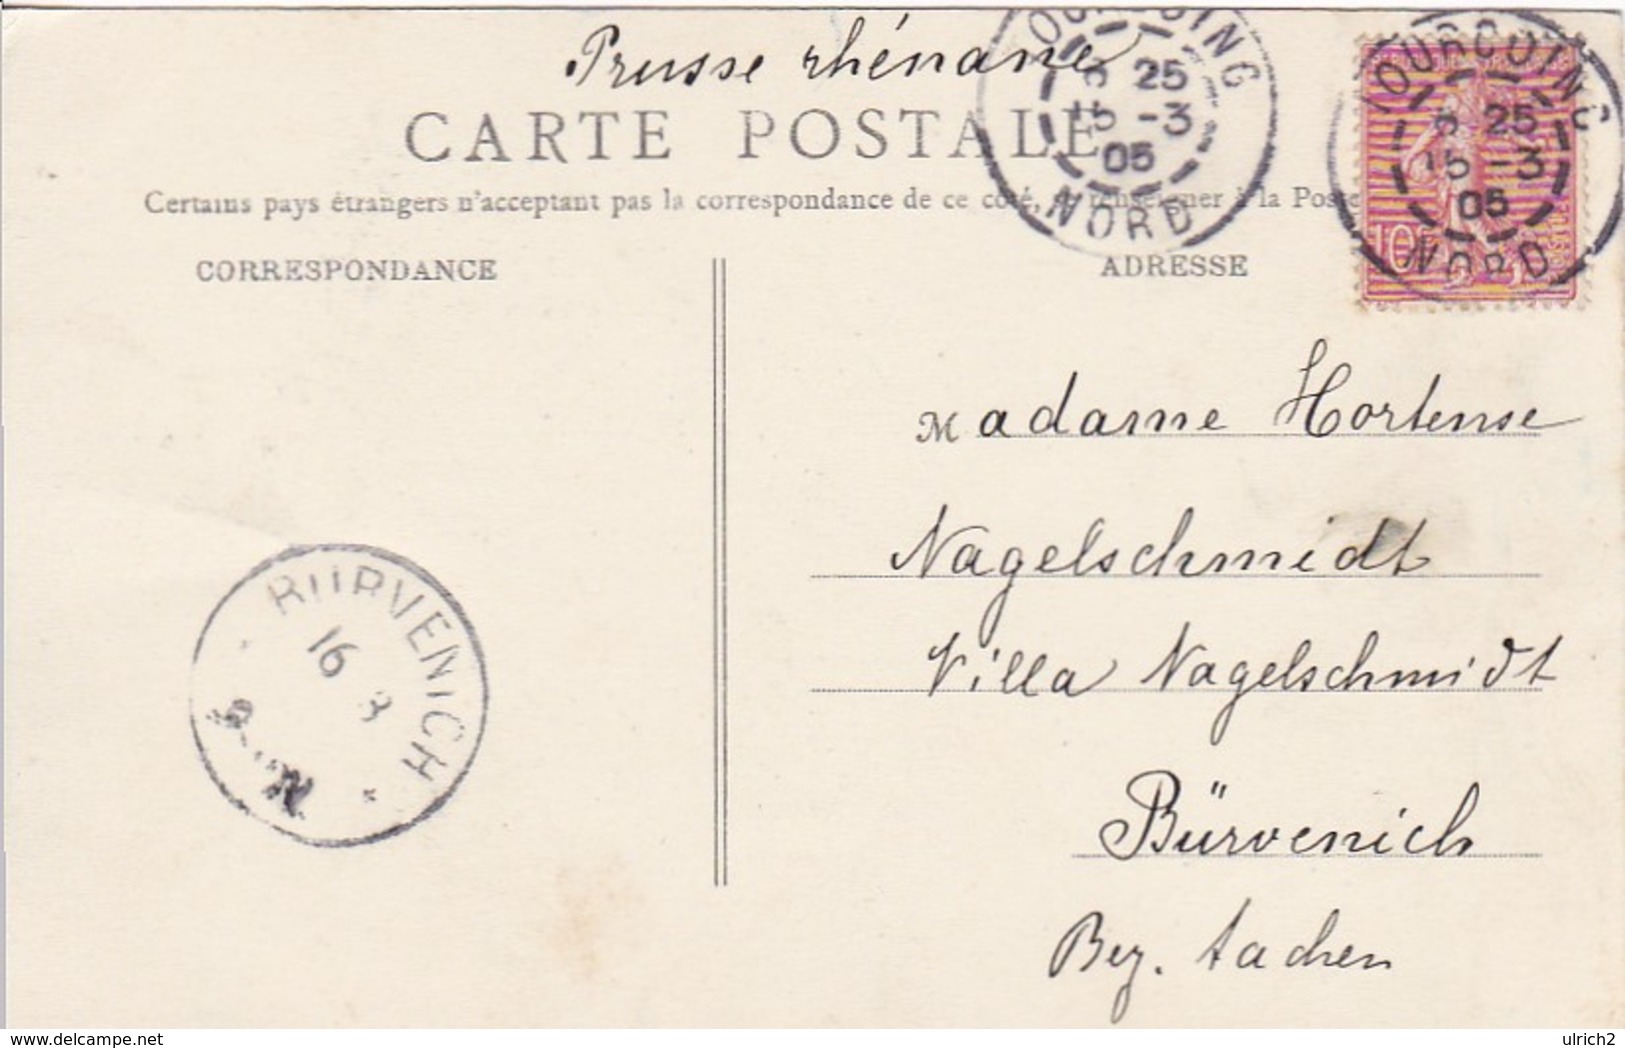 Prusse rhénane
CARTE POSTALE
Certains pays étrangers n'acceptent pas la correspondance de ce coté, se renseigner à la Poste
CORRESPONDANCE
ADRESSE
TOURCOING
25
15 -3
05
NORD
TOURCOING
25
15 -3
05
NORD
10
Madame Hortense
Nagelschmidt
Villa Nagelschmidt
Bürvenich
Bez. Aachen
BÜRVENICH
16
3
www.delcampe.net
ulrich2